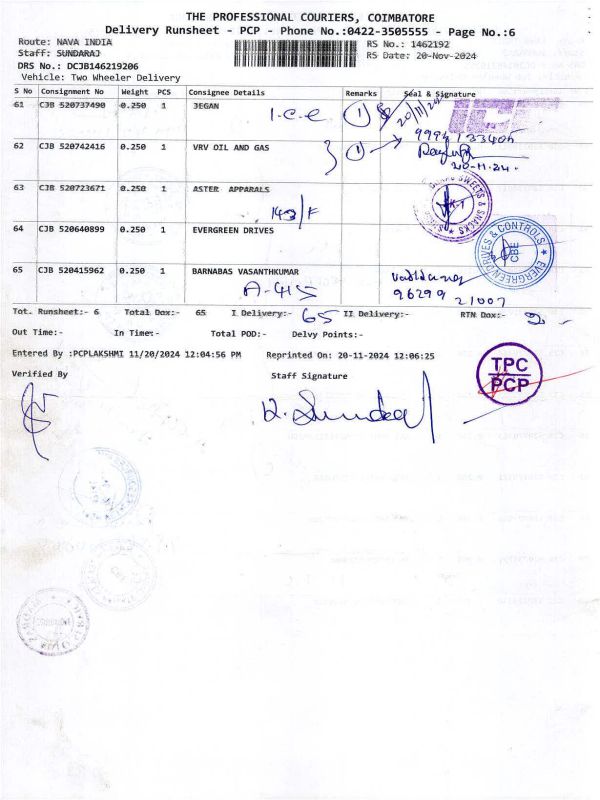 THE PROFESSIONAL COURIERS, COIMBATORE
Delivery Runsheet - PCP - Phone No.:0422-3505555 - Page No.:6
Route: NAVA INDIA
RS No.: 1462192
Staff: SUNDARAJ
RS Date: 20-Nov-2024
DRS No.: DCJB146219206
Vehicle: Two Wheeler Delivery
S No Consignment No Weight PCS Consignee Details Remarks Seal & Signature
61 CJB 520737490 0.250 1 JEGAN
I.C.C 1 20/11/24
9994133405
62 CJB 520742416 0.250 1 VRV OIL AND GAS
1
20-11-24.
63 CJB 520723671 0.250 1 ASTER APPARALS
SWEETS & SNACKS
143/F
64 CJB 520640899 0.250 1 EVERGREEN DRIVES
EVERGREEN DRIVES & CONTROLS
CBE
65 CJB 520415962 0.250 1 BARNABAS VASANTHKUMAR
A-415
96299 21007
Tot. Runsheet:- 6 Total Dox:- 65 I Delivery:- 65 II Delivery:- RTN Dox:-
Out Time:- In Time:- Total POD:- Delvy Points:-
Entered By :PCPLAKSHMI 11/20/2024 12:04:56 PM Reprinted On: 20-11-2024 12:06:25
Verified By Staff Signature
TPC
PCP
K. Sundar